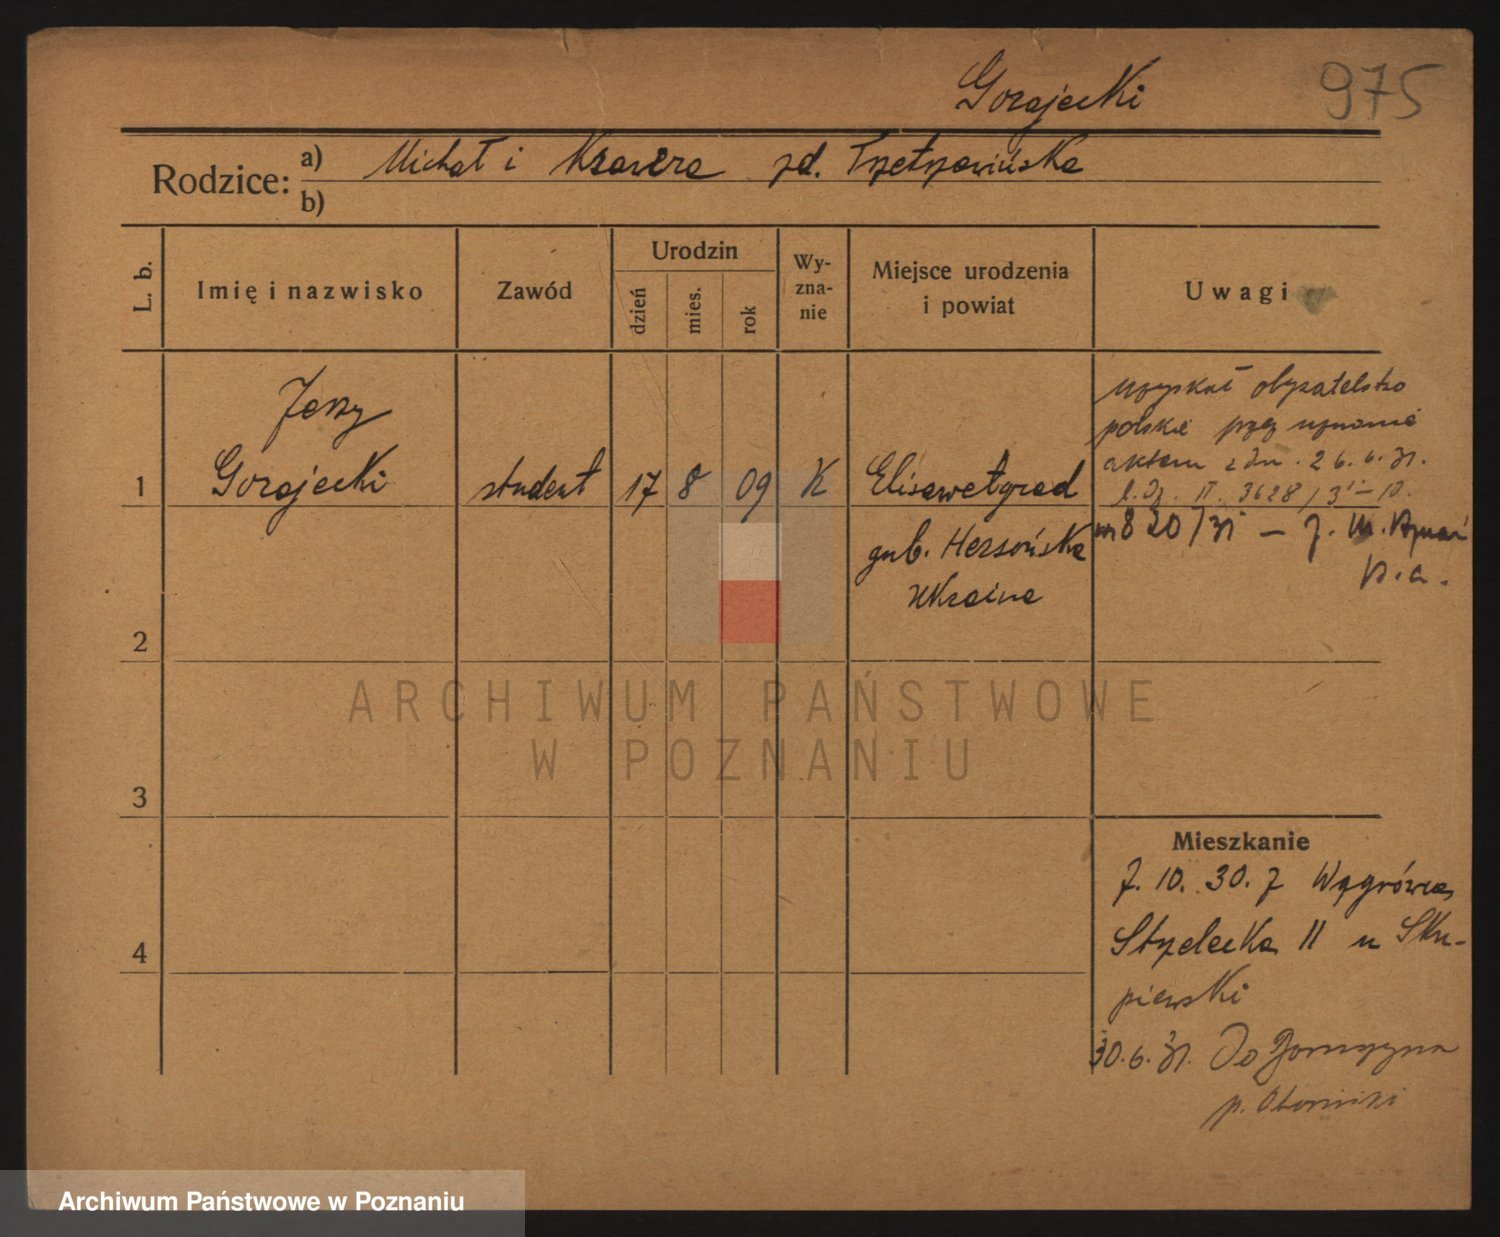 Gorajecki
975
Rodzice:
a) Michał i Ksawera zd.
b)
L. b.
Imię i nazwisko
Zawód
Urodzin
dzień
mies.
rok
Wy-
zna-
nie
Miejsce urodzenia
i powiat
Uwagi
Jerzy
1 Gorajecki student 17 8 09 K Elisawetgrad
gub. Hersońska
Ukraina
uzyskał obywatelstwo
polskie przez uznanie
aktem z dn. 26.6.31.
820/31
2
3
4
Mieszkanie
7.10.30. z Wągrówca
Strzelecka 11 u Sku-
piewski
30.6.31. Do
p. Oborniki
ARCHIWUM PAŃSTWOWE
W POZNANIU
Archiwum Państwowe w Poznaniu